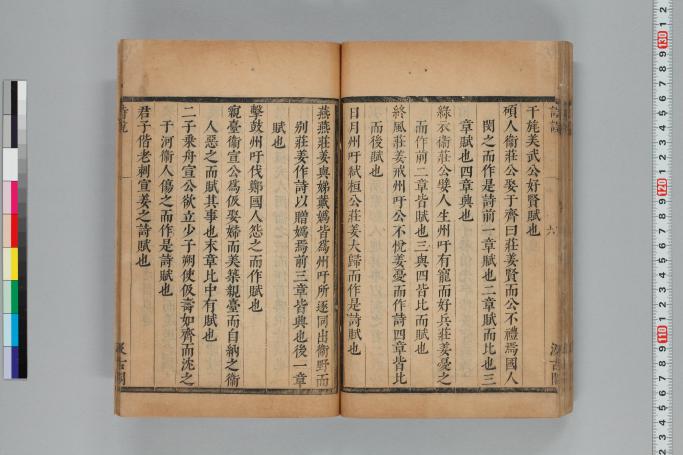 干旄美武公好賢賦也
碩人衞莊公娶于齊曰莊姜賢而公不禮焉國人
閔之而作是詩前一章賦也二章賦而比也三
章賦也四章興也
綠衣衞莊公嬖人生州吁有寵而好兵莊姜憂之
而作前二章皆賦也三與四皆比而賦也
終風莊姜戒州吁公不悅姜憂而作詩四章皆比
而後賦也
日月州吁弑桓公莊姜大歸而作是詩賦也
燕燕莊姜與娣戴嬀皆爲州吁所逐同出衞野而
別莊姜作詩以贈嬀焉前三章皆興也後一章
賦也
擊鼓州吁伐鄭國人怨之而作賦也
新臺衞宣公爲伋娶婦而美築新臺而自納之衞
人惡之而賦其事也末章比中有賦也
二子乘舟宣公欲立少子朔使伋壽如齊而沈之
于河衞人傷之而作是詩賦也
君子偕老刺宣姜之詩賦也
詩說
六
汲古閣